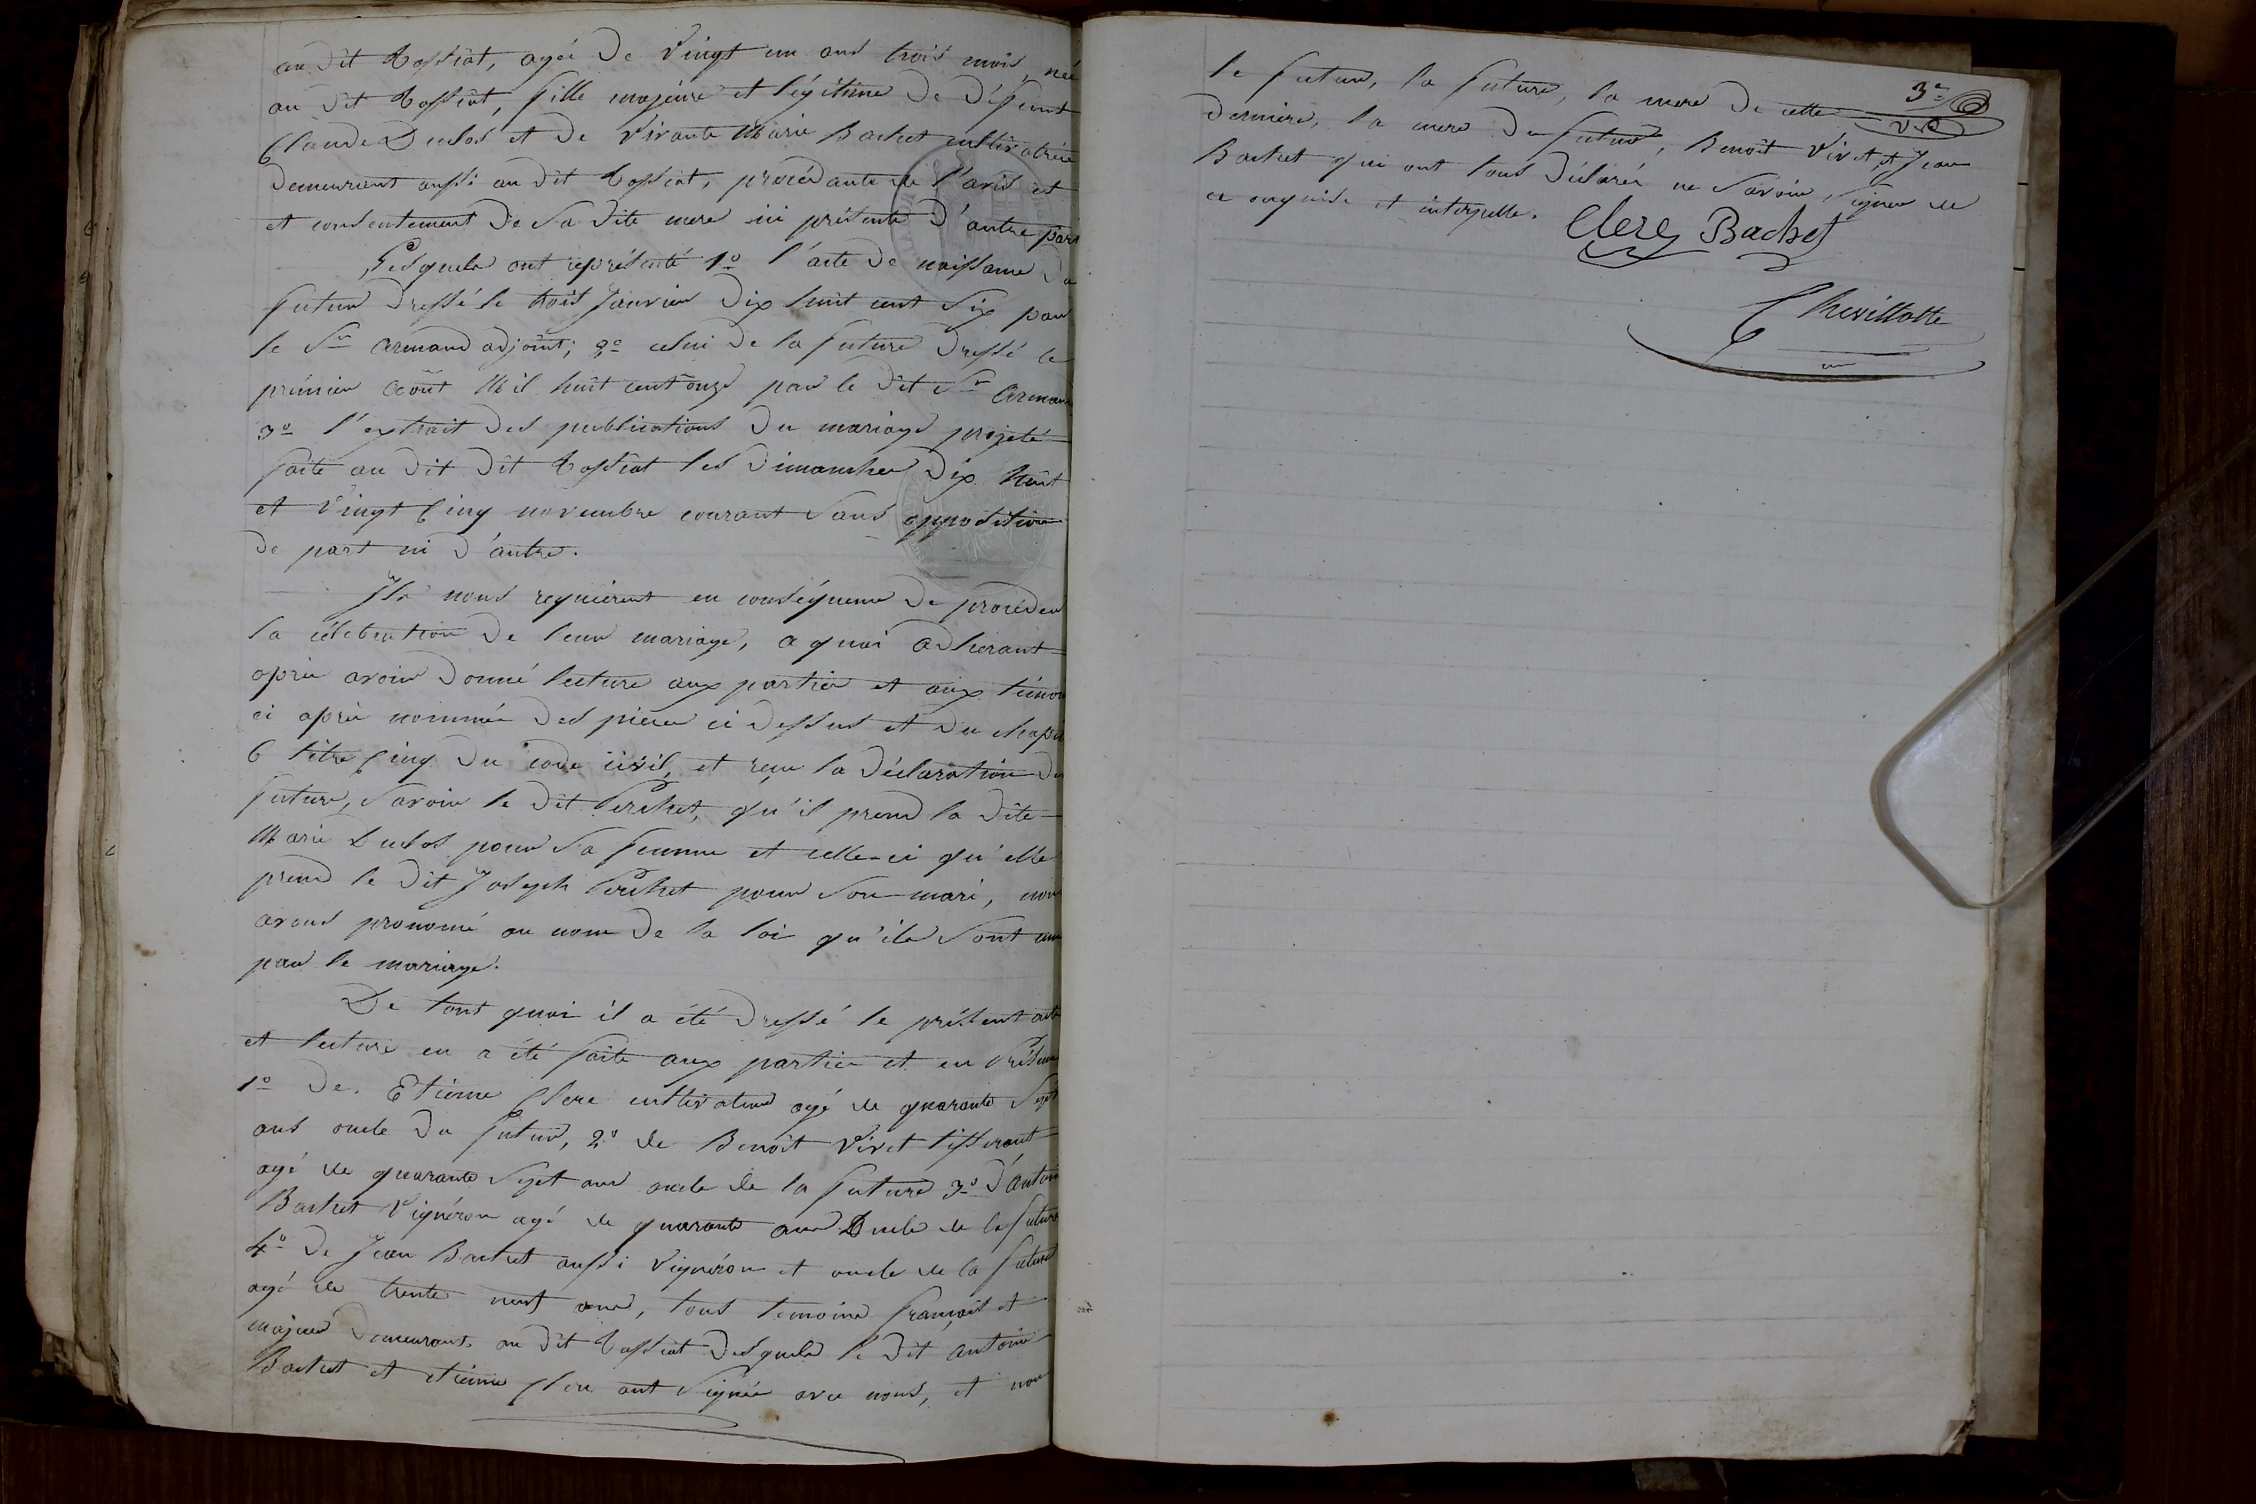 au dit Tossiat, agée de Vingt un ans trois mois, née
au dit Tossiat, fille majeure et légitime de défunt
Claude Duclos et de vivante Marie Bachet cultivatrice
demeurant aussi au dit Tossiat, procédante de l'avis et
et consentement de Sa dite mere ici présente d'autre part
Lesquels ont représenté 1º l'acte de naissance du
futur dressé le trois Janvier dix huit cent Six par
le Sr Armand adjoint; 2º celui de la future dressé le
prémier Août Mil huit cent onze par le dit Sr Armand
3º l'extrait des publications du mariage projeté
faite au dit dit Tossiat les dimanches dix huit
et Vingt Cinq novembre courant Sans opposition
de part ni d'autre.
Ils nous requièrent en conséquence de procéder
la célébration de leur mariage, a quoi adhérant
après avoir donné lecture aux parties et aux témoin
ci après nommés des pieces ci dessus et du chapit
6 titre Cinq du code civil, et reçu la déclaration des
futurs, Savoir le dit Perchet, qu'il prend la dite
Marie Duclos pour Sa femme et celle-ci qu'elle
prend le dit Joseph Perchet pour Son mari, nous
avons prononcé au nom de la loi qu'ils Sont unis
par le mariage.
De tout quoi il a été dressé le présent acte
et lecture en a été faite aux parties et en présence
1º De. Etienne Clere cultivateur agé de quarante Sept
ans oncle du futur, 2º de Benoit Vivet tisserant
agé de quarante Sept ans oncle de la future 3º d'Antoine
Bachet Vignéron agé de quarante ans Oncle de la future
4º de Jean Bachet aussi Vignéron et oncle de la future
agé de trente neuf ans, tous temoins français et
majeurs demeurants au dit Tossiat desquels le dit Antoine
Bachet et etienne Clere ont Signés avec nous, et non
3e
le futur, la future, la mere de cette
derniere, la mere du futur, Benoit Vivet, et Jean
Bachet qui ont tous déclarés ne Savoir Signer de
ce enquis et interpellés.
Clere Bachet
Chevillotte